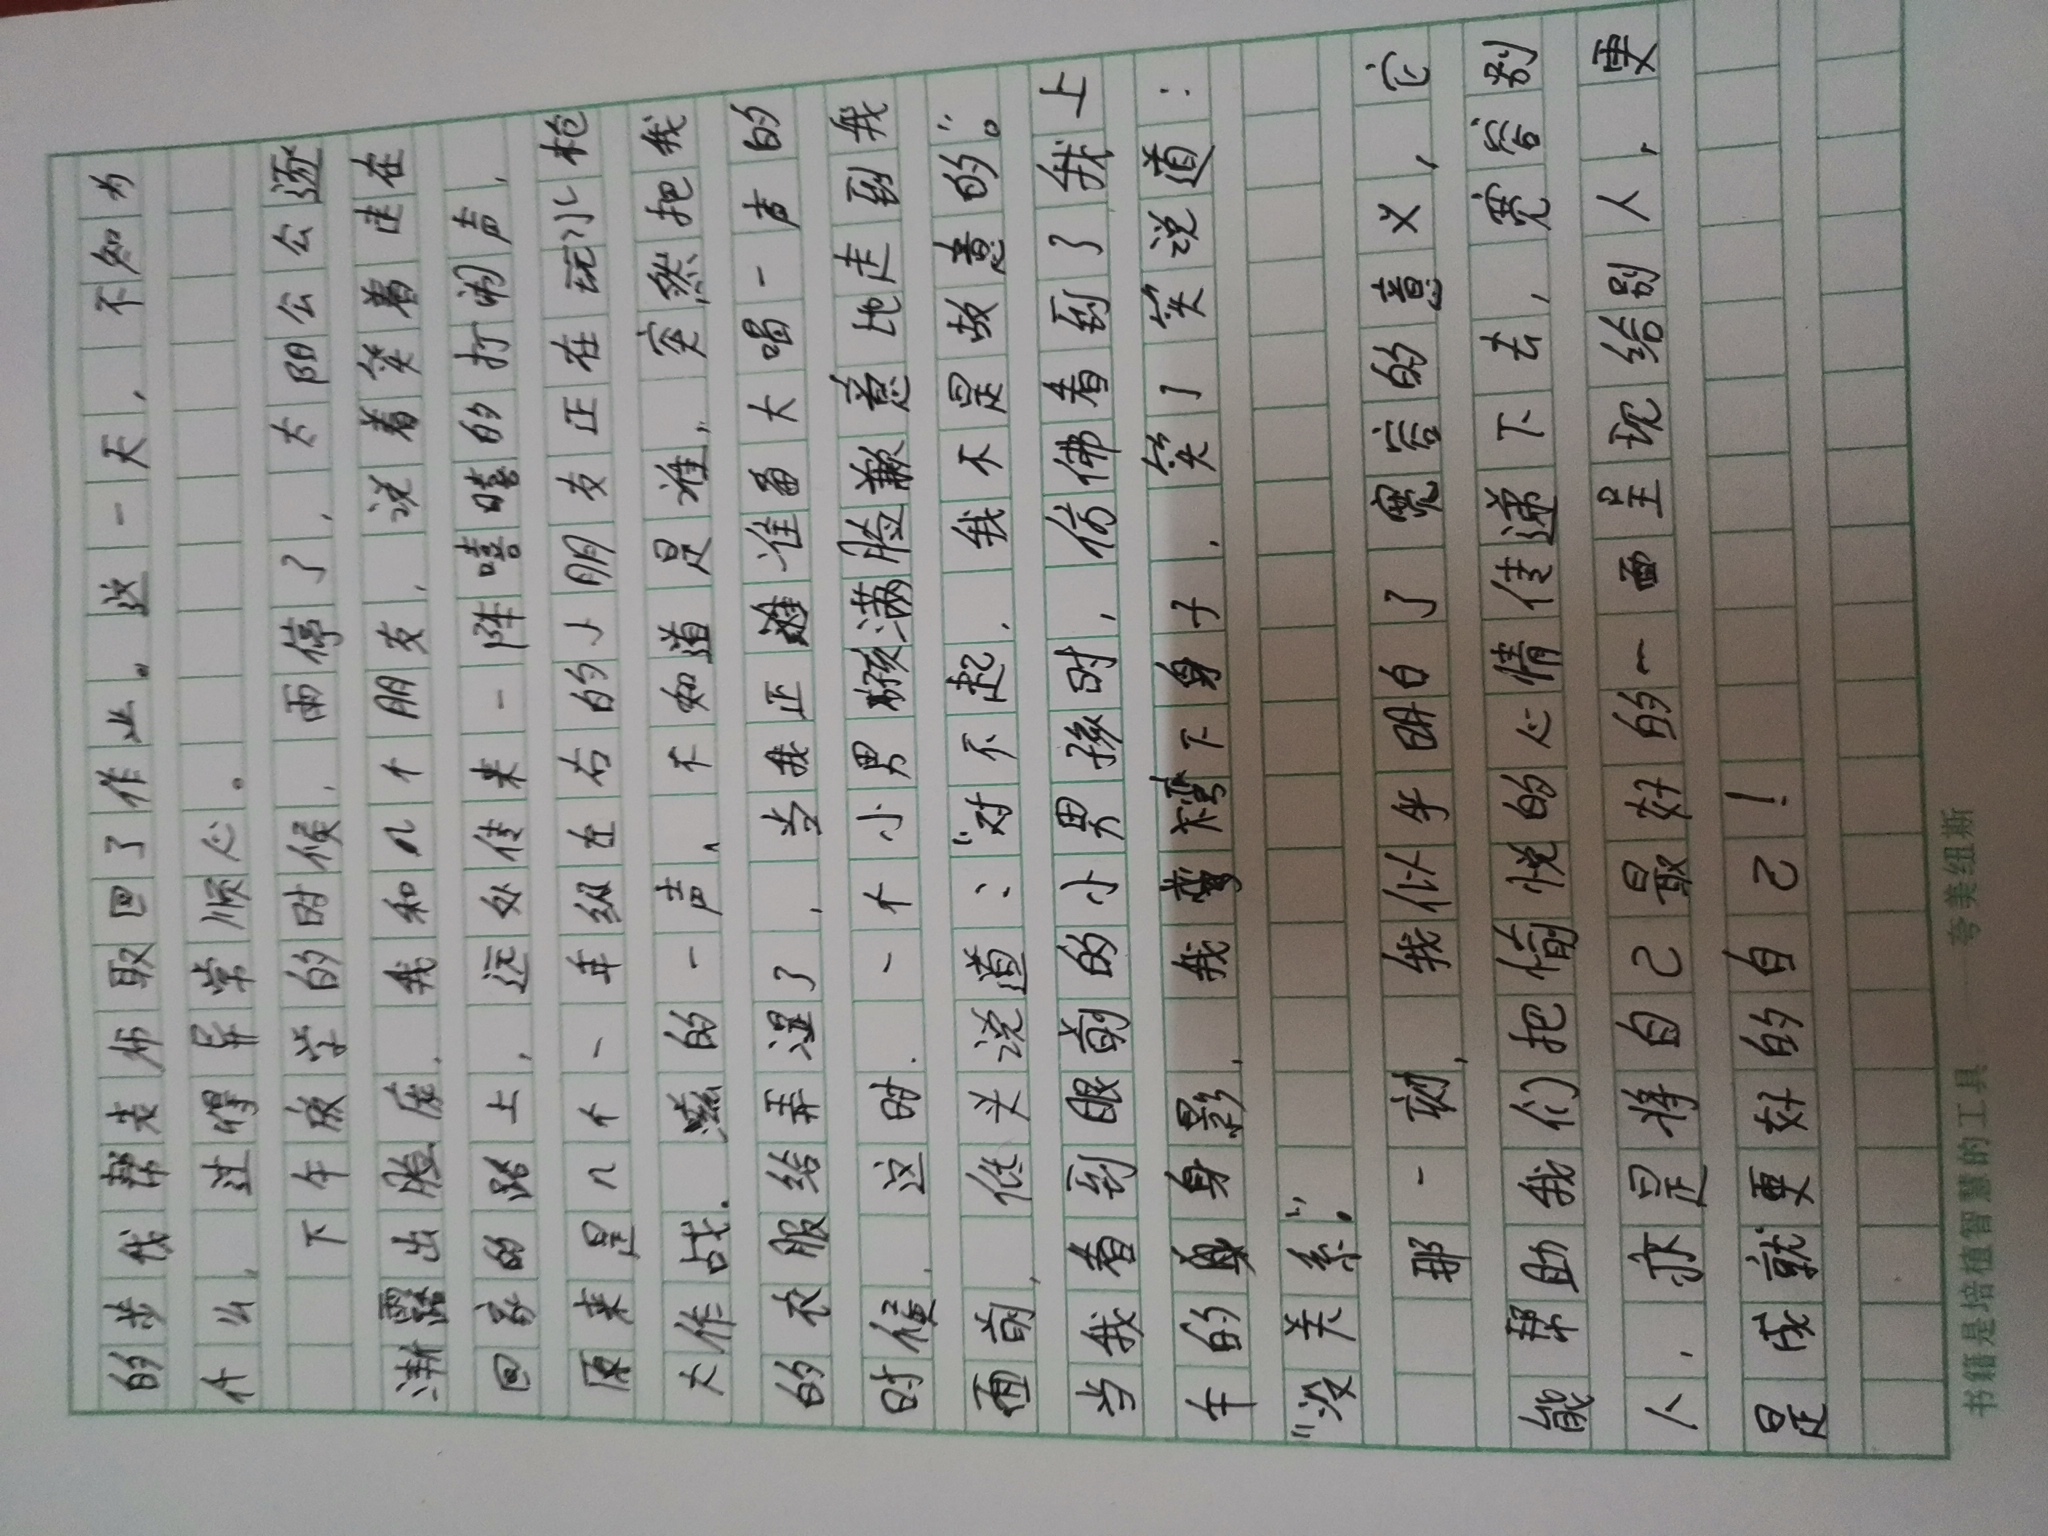 的步伐帮老师取回了作业。这一天，不知为
什么，过得异常顺心。
下午放学的时候，雨停了，太阳公公逐
渐露出脸庞，我和几个朋友，说着笑着走在
回家的路上，远处传来一阵嘻嘻的打闹声，
原来是几个一年级左右的小朋友正在玩水枪
大作战。滋的一声，不知道是谁，突然把我
的衣服给弄湿了，当我正准备大喝一声的
时候，这时，一个小男孩满脸歉意地走到我
面前，低头说道：“对不起，我不是故意的”。
当我看到眼前的小男孩时，仿佛看到了我上
午的身影，我弯下身子，笑了笑说道：
“没关系”。
那一刻，我似乎明白了宽容的意义，它
能帮助我们把愉悦的心情传递下去，宽容别
人，亦是将自己最好的一面呈现给别人，更
是成就更好的自己！
书籍是培植智慧的工具——夸美纽斯